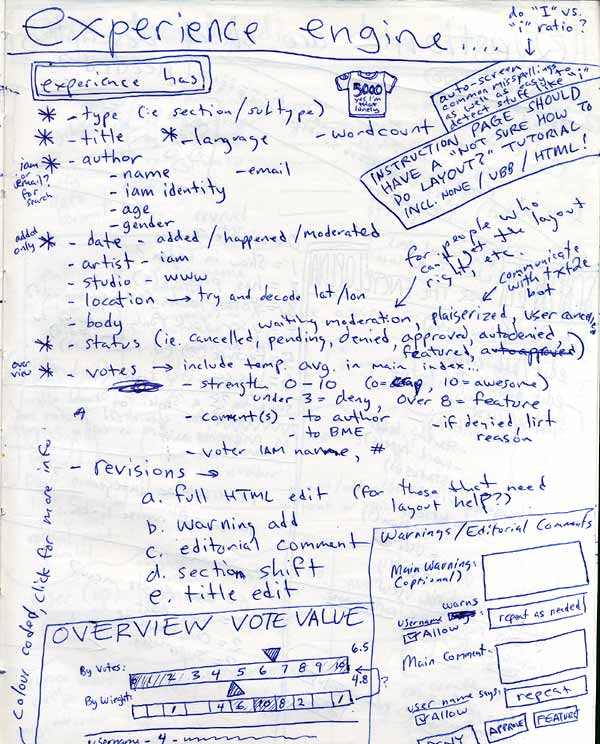 experience engine....
do "I" vs.
"i" ratio?
experience has
5000
yes I'm
lonely
auto-screen
common misspellings
as well as easy to
detect stuff like "i"
INSTRUCTION PAGE SHOULD
HAVE A "NOT SURE HOW TO
DO LAYOUT?" TUTORIAL
INCL. NONE / UBB / HTML!
* - type (ie section/subtype)
* - title * - language - wordcount
iam
or
email?
for
search
* - author
- name - email
- iam identity
- age
- gender
added
only
* - date - added / happened / moderated
- artist - iam
- studio - www
- location → try and decode lat/lon
- body
for people who
can't get the layout
right, etc.
communicate
with txt2e
bot
waiting moderation, plaiserized, user cancelled
* - status (ie. cancelled, pending, denied, approved, autodenied,
featured, autoapproved)
over
view
* - votes → include temp. avg. in main index...
- strength 0-10 (0=crap, 10=awesome)
under 3 = deny, over 8 = feature
- comment(s) - to author
- to BME
- if denied, list
reason
- voter IAM name, #
- revisions →
a. full HTML edit (for those that need
layout help??)
b. warning add
c. editorial comment
d. section shift
e. title edit
- Colour coded, click for more info.
OVERVIEW VOTE VALUE
6.5
By Votes: 0 1 2 3 4 5 6 7 8 9 10
4.8
?
By Weight: 1 4 6 10 8 2 1
username - 4 -
Warnings/Editorial Comments
Main Warning:
(optional)
warns
username :
Allow
repeat as needed
Main Comment:
user name says:
Allow
repeat
DENY
APPROVE
FEATURE